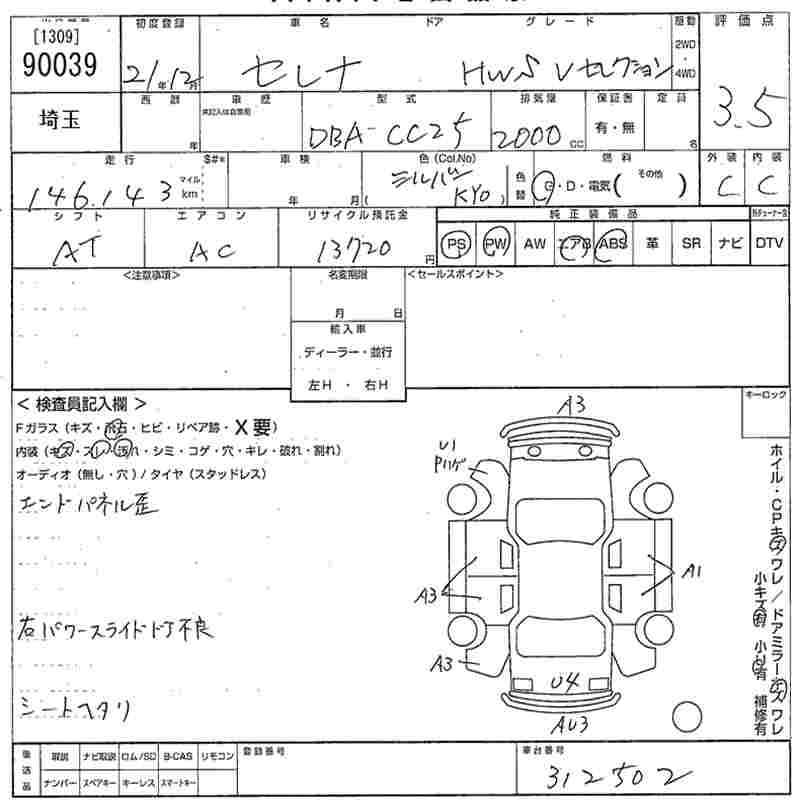 [1309]
90039
埼玉
初度登録
21年12月
車名
ドア
グレード
セレナ
HWS Vセレクション
駆動
2WD
4WD
評価点
3.5
西暦
年
車歴
未記入は自家用
型式
DBA-CC25
排気量
2000cc
保証書
有・無
定員
名
走行
S#*
146.143
マイル
km
車検
年 月
色(Col.No)
シルバー
( KY0 )
色替
燃料
G・D・電気( その他 )
外装
C
内装
C
シフト
AT
エアコン
AC
リサイクル預託金
13720円
純正装備品
PS PW AW エアB ABS 革 SR ナビ
DTV
<注意事項>
名変期限
月 日
輸入車
ディーラー・並行
左H ・ 右H
<セールスポイント>
<検査員記入欄>
Fガラス(キズ・飛石・ヒビ・リペア跡・X要)
内装(キズ・スレ・汚れ・シミ・コゲ・穴・キレ・破れ・割れ)
オーディオ(無し・穴)/タイヤ(スタッドレス)
エンドパネル歪
右パワースライドドア不良
シートヘタリ
キーロック
A3
U1
Pハゲ
A3
A1
A3
U4
AU3
ホイル・CPキズワレ/ドアミラーキズワレ
小キズ有 小U有 補修有
後送品
取説 ナビ取説 ロム/SD B-CAS リモコン
ナンバー スペアキー キーレス スマートキー
登録番号
車台番号
312502